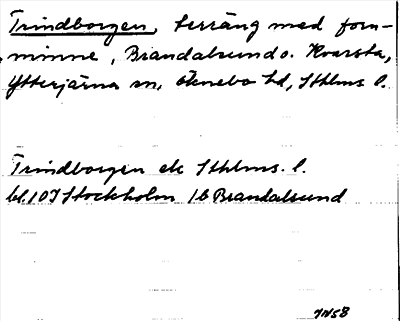 Trindborgen, terräng med forn-
minne, Brandalsund o. Kvarsta,
Ytterjärna sn, Öknebo hd, Sthlms l.
Trindborgen ek Sthlms. l.
bl. 10I Stockholm 1b Brandalsund
JN58